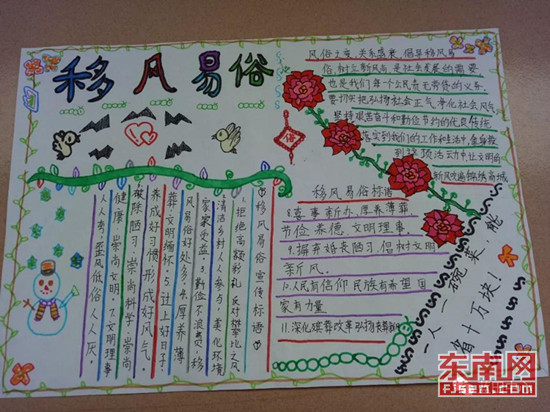 移风易俗
风俗之变,关系盛衰,倡导移风易
俗,树立新风尚是社会发展的需要
也是我们每个公民责无旁贷的义务。
要切实把弘扬社会正气,净化社会风气
坚持艰苦奋斗和勤俭节约的优良传统
落实到我们的工作和生活中,全身投
到移项活动中,让文明的
新风吹遍锦绣高城
俗
移风易俗宣传标语
1.拒绝高额彩礼,反对攀比之风
清洁乡村人人参与,美化环境
家家受益。3.勤俭不浪费,移
风易俗好处多。4.厚养薄
葬,文明缅怀。5.过上好日子,
养成好习惯,形成好风气。
破除陋习,崇尚科学,崇尚
健康,崇尚文明。7.文明理事
人人夸,歪风低俗人人厌。
移风易俗标语
8.喜事新办,厚养薄葬
节俭养德,文明理事。
9.摒弃婚丧陋习,倡树文明
新风。
10.人民有信仰 民族有希望 国
家有力量
11.深化殡葬改革,弘扬
一人一碗菜,能
省十万块!
东南网
FJSEN.COM